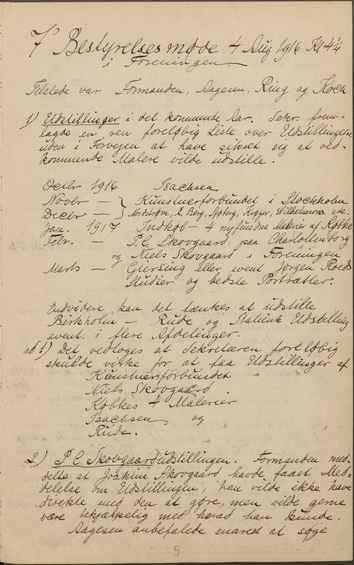 7 Bestyrelsesmøde 4 Aug 1916 Kl 4½
i Foreningen
Tilstede var Formanden, Aagesen, Ring og Koch
1) Udstillinger i det kommende Aar. Sekr. frem-
lagde en ren foreløbig Liste over Udstillingen
uden i Forvejen at have sikret sig at ved-
kommende Malere vilde udstille.
Octbr 1916 Isachsen
Novbr — Kunstnerforbundet i Stockholm
Decbr —
Jan. 1917 Indkøb - 4 nyfundne Malerier af Købke
Febr. — P.C. Skovgaard paa Charlottenborg
og Niels Skovgaard i Foreningen
Marts — Giersing eller event Jørgen Roeds
Studier og bedste Portrætter.
Endvidere kan det tænkes at udstille
Birkholm - Rude og Italiensk Udstilling
event. i flere Afdelinger.
ad 1) Det vedtoges at Sekretæren foreløbig
skulde virke for at faa Udstillinger af
Kunstnerforbundet
Niels Skovgaard
Købkes 4 Malerier
Isachsen og
Rude.
2) P.C. Skovgaardudstillingen. Formanden med-
delte at Joakim Skovgaard havde faaet Med-
delelse om Udstillingen, han vilde ikke have
med den at gøre, men vilde gerne
være behjælpelig med hvad han kunde.
Aagesen anbefalede snarest at søge
5